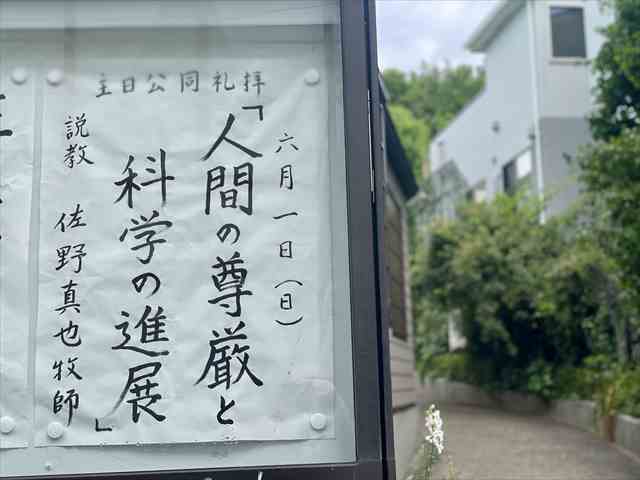 主日公同礼拝
六月一日(日)
「人間の尊厳と
科学の進展」
説教 佐野真也牧師